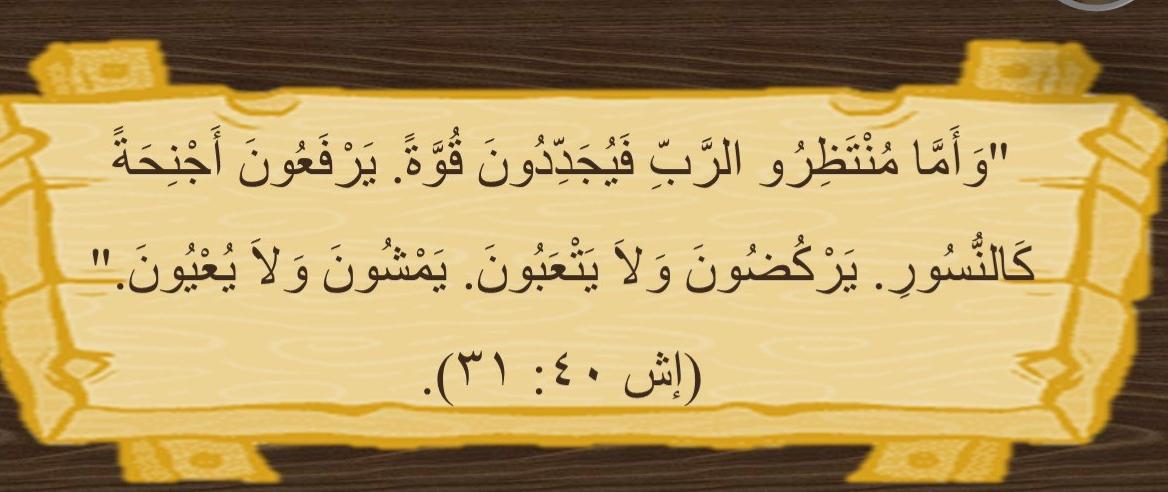 "وَأَمَّا مُنْتَظِرُو الرَّبِّ فَيُجَدِّدُونَ قُوَّةً. يَرْفَعُونَ أَجْنِحَةً
كَالنُّسُورِ. يَرْكُضُونَ وَلاَ يَتْعَبُونَ. يَمْشُونَ وَلاَ يُعْيُونَ."
(إش ٤٠: ٣١).